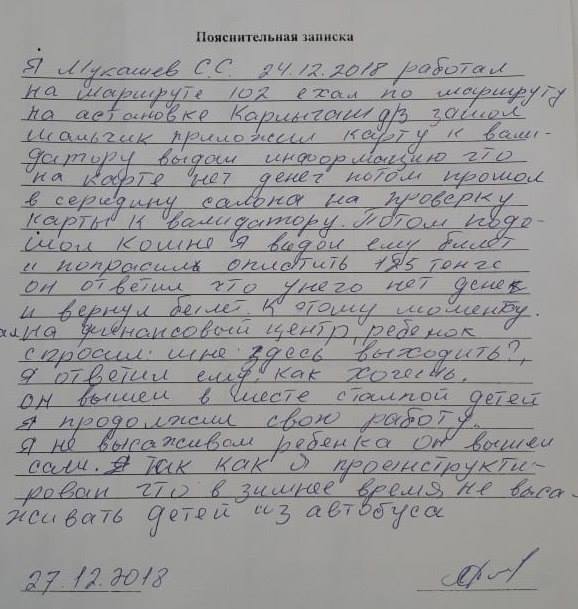 Пояснительная записка
Я Мукашев С.С. 24.12.2018 работал
на маршруте 102 ехал по маршруту
на астановке Карлыгаш д/з зашол
мальчик приложил карту к вали-
датору выдал информацию что
на карте нет денег потом прошол
в середину салона на проверку
карты к валидатору. Потом подо-
шол комне я выдол ему билет
и попросил оплатить 185 тенге
он ответил что унего нет денек
и вернул билет. К этому моменту.
на финансовый центр, ребенок
спросил: мне здесь выходить?,
я ответил ему: как хочешь.
он вышел в месте столпой детей
я продолжил свою работу.
Я не высаживал ребенка он вышел
сам. Так как я проинструкти-
рован что в зимнее время не выса-
живать детей из автобуса
27.12.2018